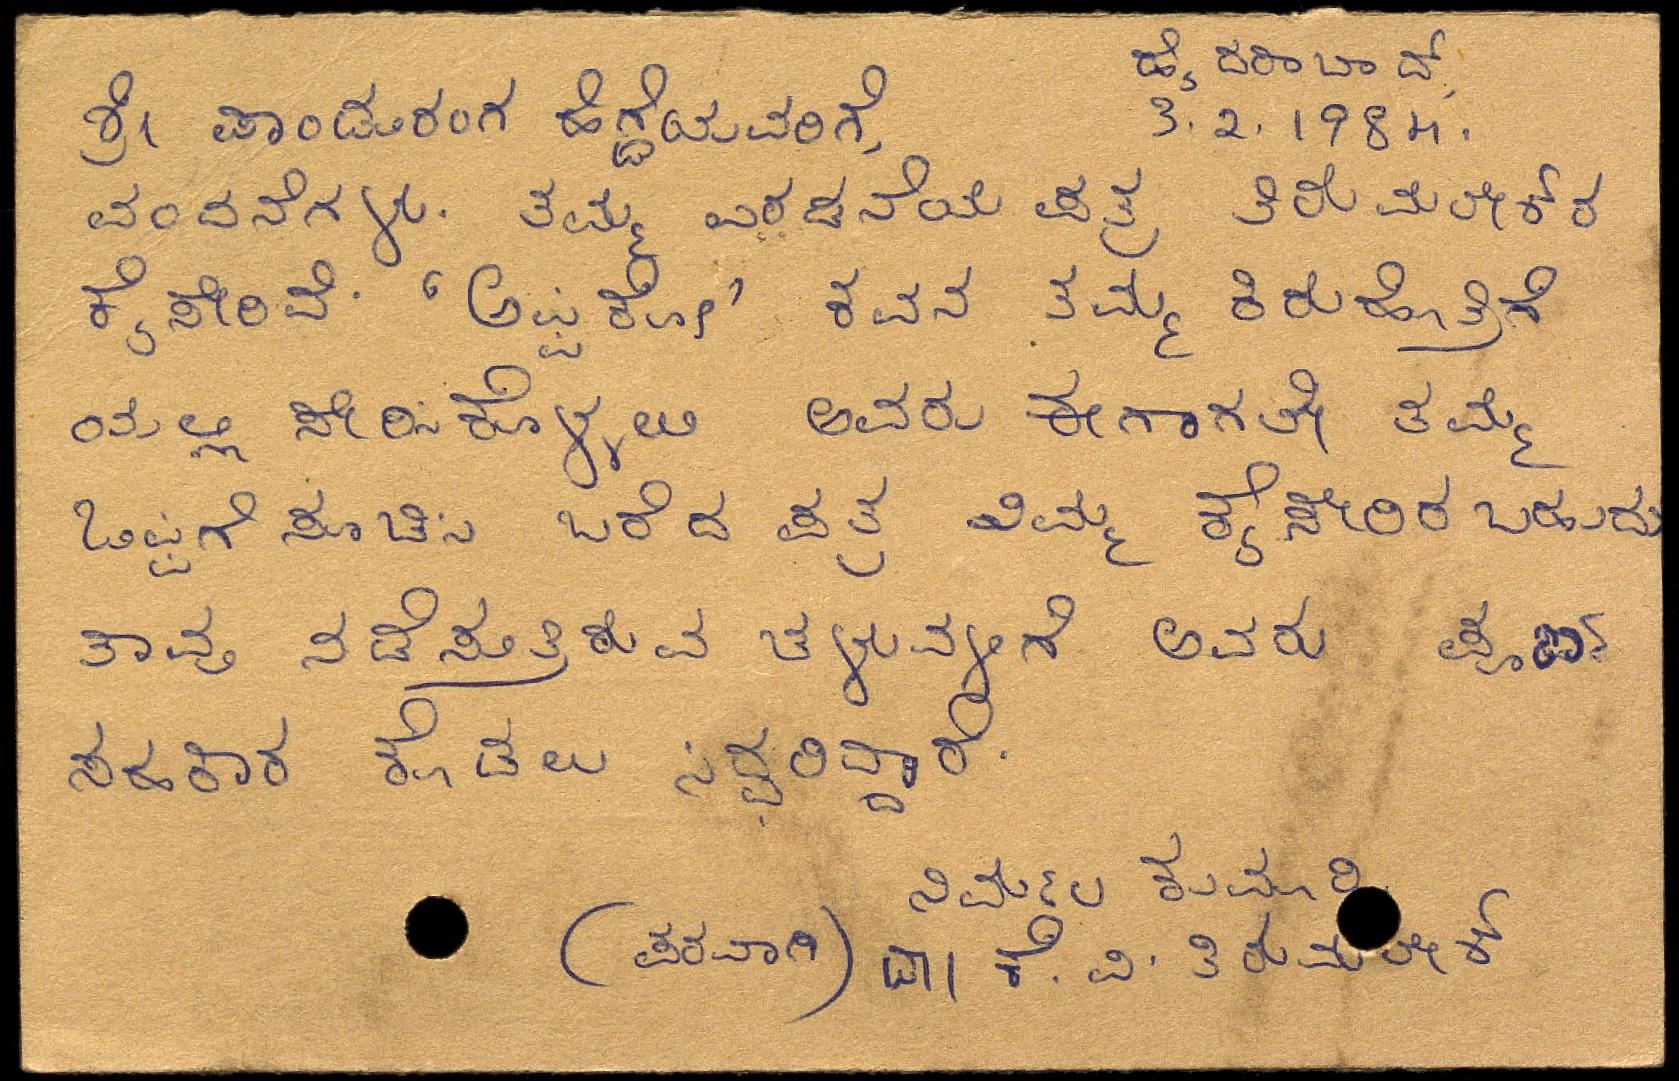 ಹೈದರಾಬಾದ್,
3.2.1984.
ಶ್ರೀ ಪಾಂಡುರಂಗ ಹೆಗ್ಡೆಯವರಿಗೆ,
ವಂದನೆಗಳು. ತಮ್ಮ ಎರಡನೆಯ ಪತ್ರ ತಿರುಮಲೇಶರ
ಕೈಸೇರಿದೆ. 'ಅಪ್ಪಿಕೋ' ಕವನ ತಮ್ಮ ಕಿರುಹೊತ್ತಿಗೆ
ಯಲ್ಲಿ ಸೇರಿಸಿಕೊಳ್ಳಲು ಅವರು ಈಗಾಗಲೇ ತಮ್ಮ
ಒಪ್ಪಿಗೆ ಸೂಚಿಸಿ ಬರೆದ ಪತ್ರ ನಿಮ್ಮ ಕೈಸೇರಿರಬಹುದು
ತಾವು ನಡೆಸುತ್ತಿರುವ ಚಳುವಳಿಗೆ ಅವರು ಪೂರ್ಣ
ಸಹಕಾರ ಕೊಡಲು ಸಿದ್ಧರಿದ್ದಾರೆ.
ನಿರ್ಮಲ ಕುಮಾರಿ
(ಪರವಾಗಿ) ಡಾ। ಕೆ. ವಿ. ತಿರುಮಲೇಶ್